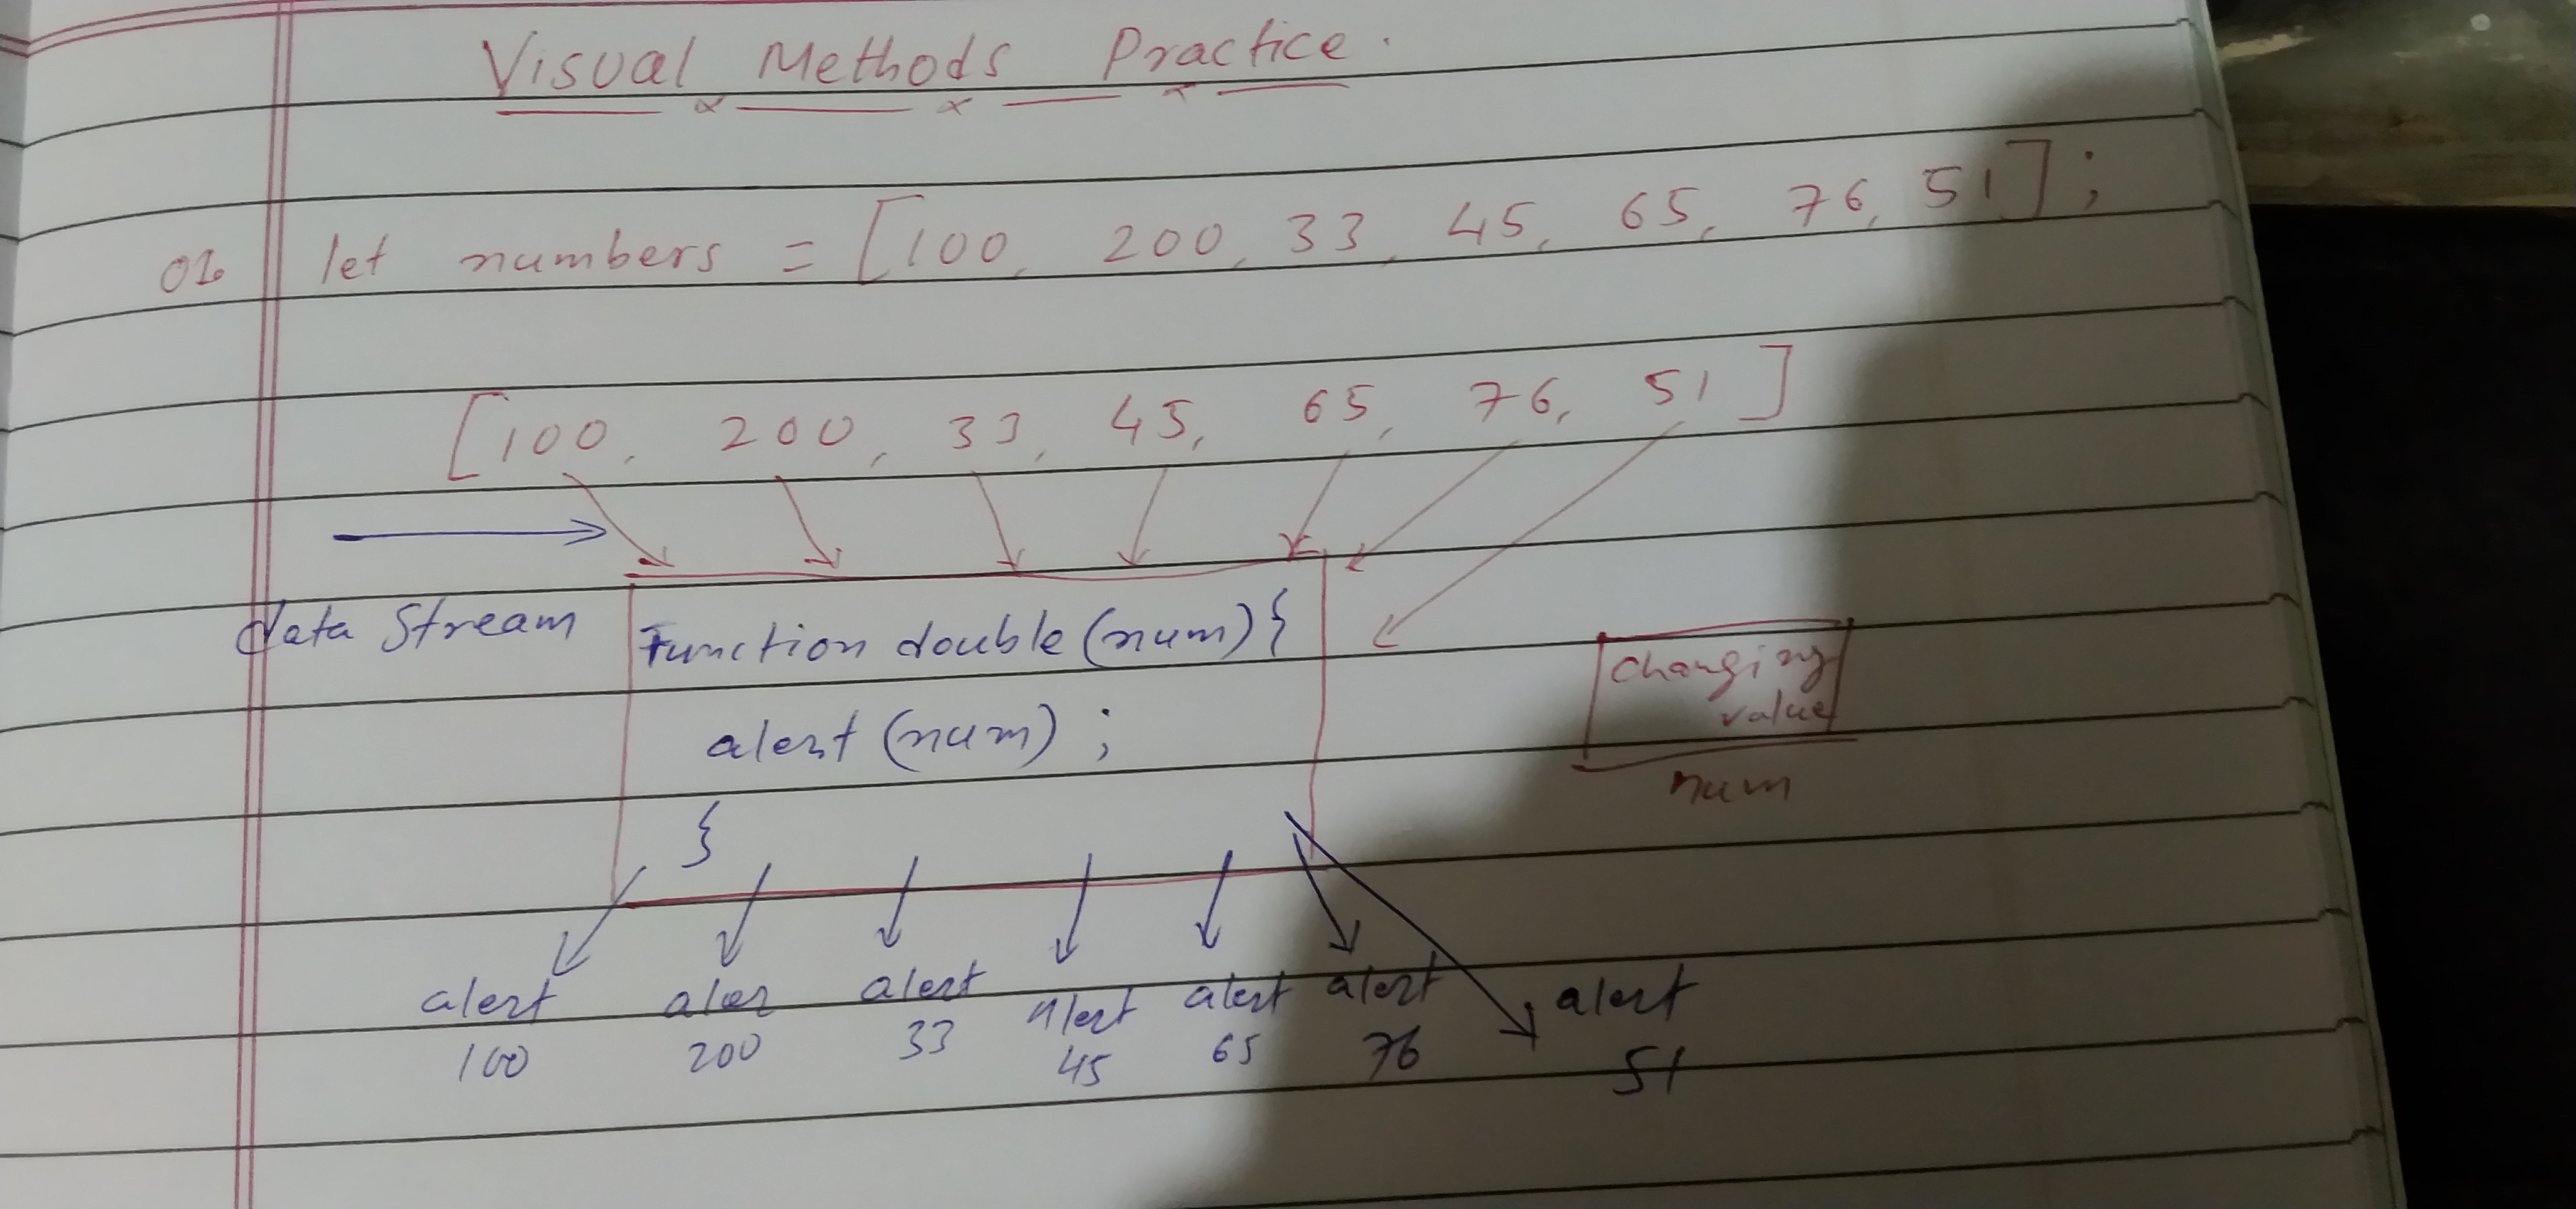 Visual Methods Practice.
01 let numbers = [100, 200, 33, 45, 65, 76, 51];
[100, 200, 33, 45, 65, 76, 51]
data Stream
Function double (num) {
alert (num) ;
}
changing
value
num
alert aler alert alert alert alert alert
100 200 33 45 65 76 51